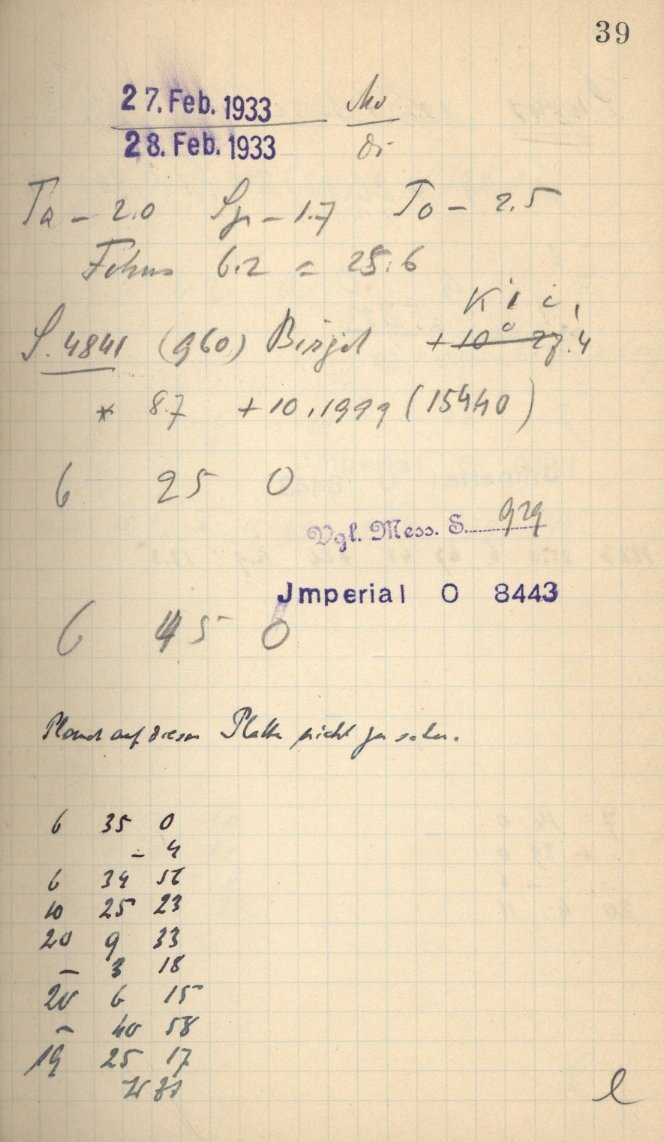 39
27. Feb. 1933 Mo
28. Feb. 1933 Di
Ta - 2.0 Sp - 1.7 To - 2.5
Fokus 6.2 = 25.6
Kić,
S. 4841 (960) Birgit +10° 27.4
* 87 +10, 1999 (15440)
6 25 0
Vgl. Mess. S. 929
Jmperial O 8443
6 45 0
Planet auf dieser Platte nicht zu sehen.
6 35 0
- 4
6 34 56
10 25 23
20 9 33
- 3 18
20 6 15
- 40 58
19 25 17